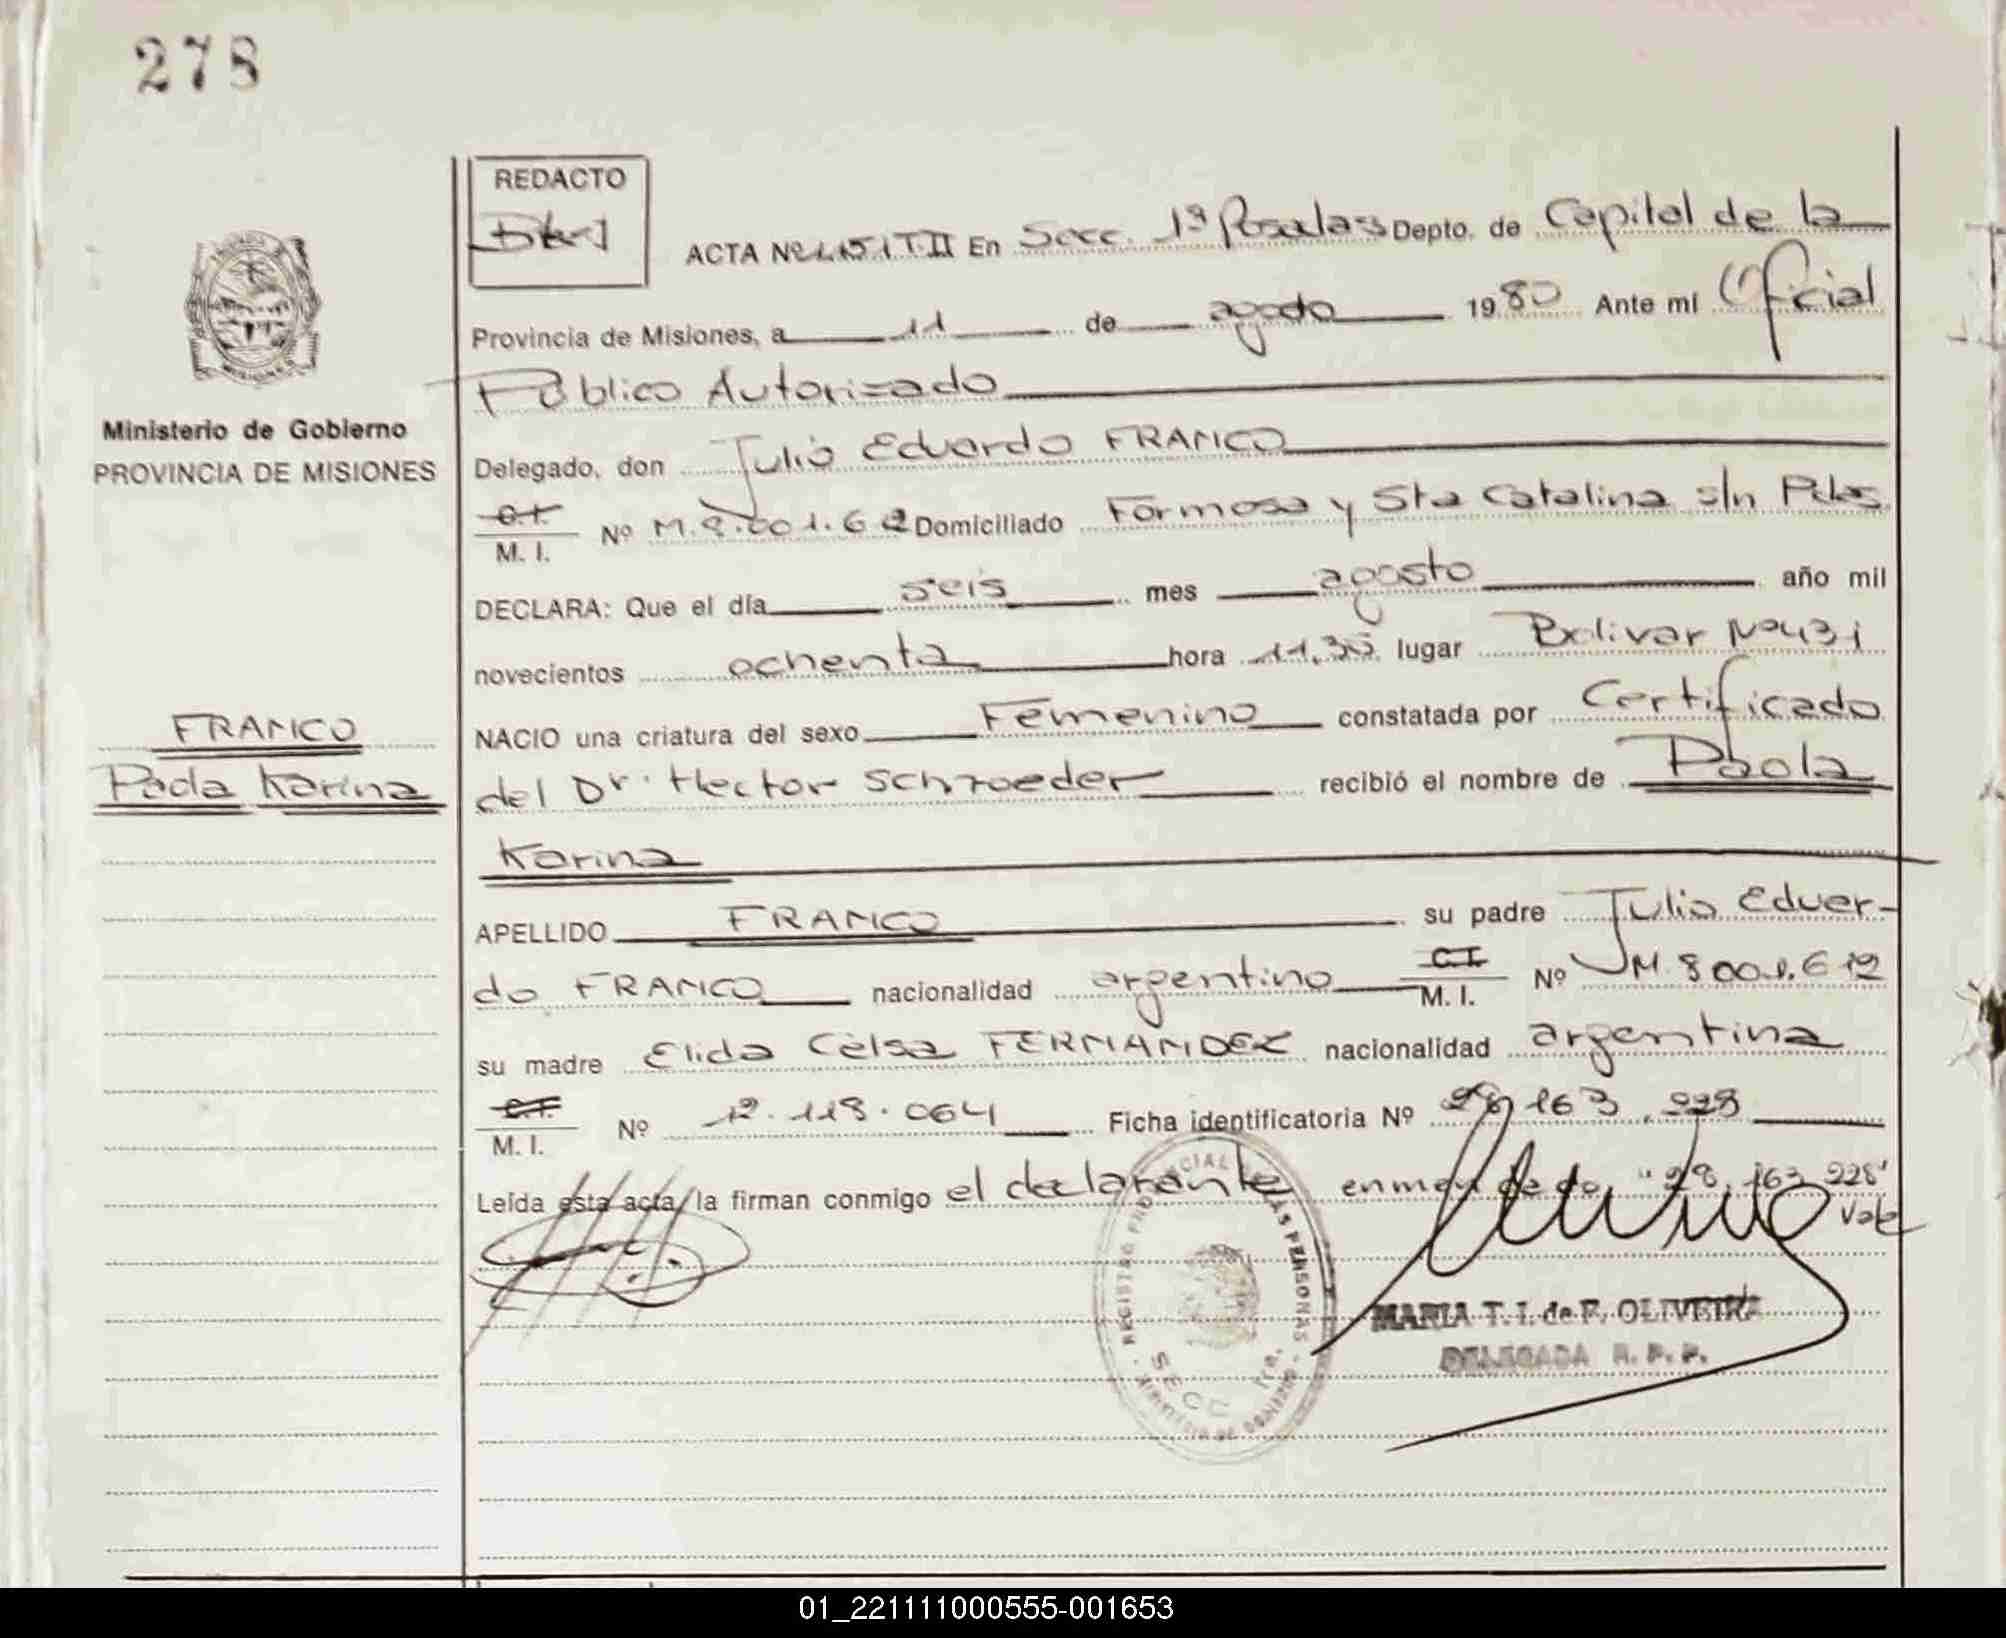 278
REDACTO
ACTA Nº 451 T.II En Secc. 1ª Posadas Depto. de Capital de la
Provincia de Misiones, a 11 de agosto 1980 Ante mi Oficial
Público Autorizado
Ministerio de Gobierno
PROVINCIA DE MISIONES
Delegado, don Julio Eduardo FRANCO
C.I.
M. I. Nº M.8.001.612 Domiciliado Formosa y Sta Catalina s/n Pdas
DECLARA: Que el día seis mes agosto año mil
novecientos ochenta hora 11,35 lugar Bolivar Nº431
NACIO una criatura del sexo Femenino constatada por Certificado
FRANCO
Paola Karina
del Dr. Hector Schroeder recibió el nombre de Paola
Karina
APELLIDO FRANCO su padre Julio Eduar-
do FRANCO nacionalidad argentino C.I. M. I. Nº M.8001.612
su madre Elida Celsa FERNANDEZ nacionalidad argentina
C.I.
M. I. Nº 12.118.064 Ficha identificatoria Nº 28.163.228
Leída esta acta, la firman conmigo el declarante enmendado "28.163.228"
Vale
REGISTRO PROVINCIAL DE LAS PERSONAS
SECC. 1ra.
MINISTERIO DE GOBIERNO
MARIA T. I. de F. OLIVEIRA
DELEGADA R. P. P.
01_221111000555-001653